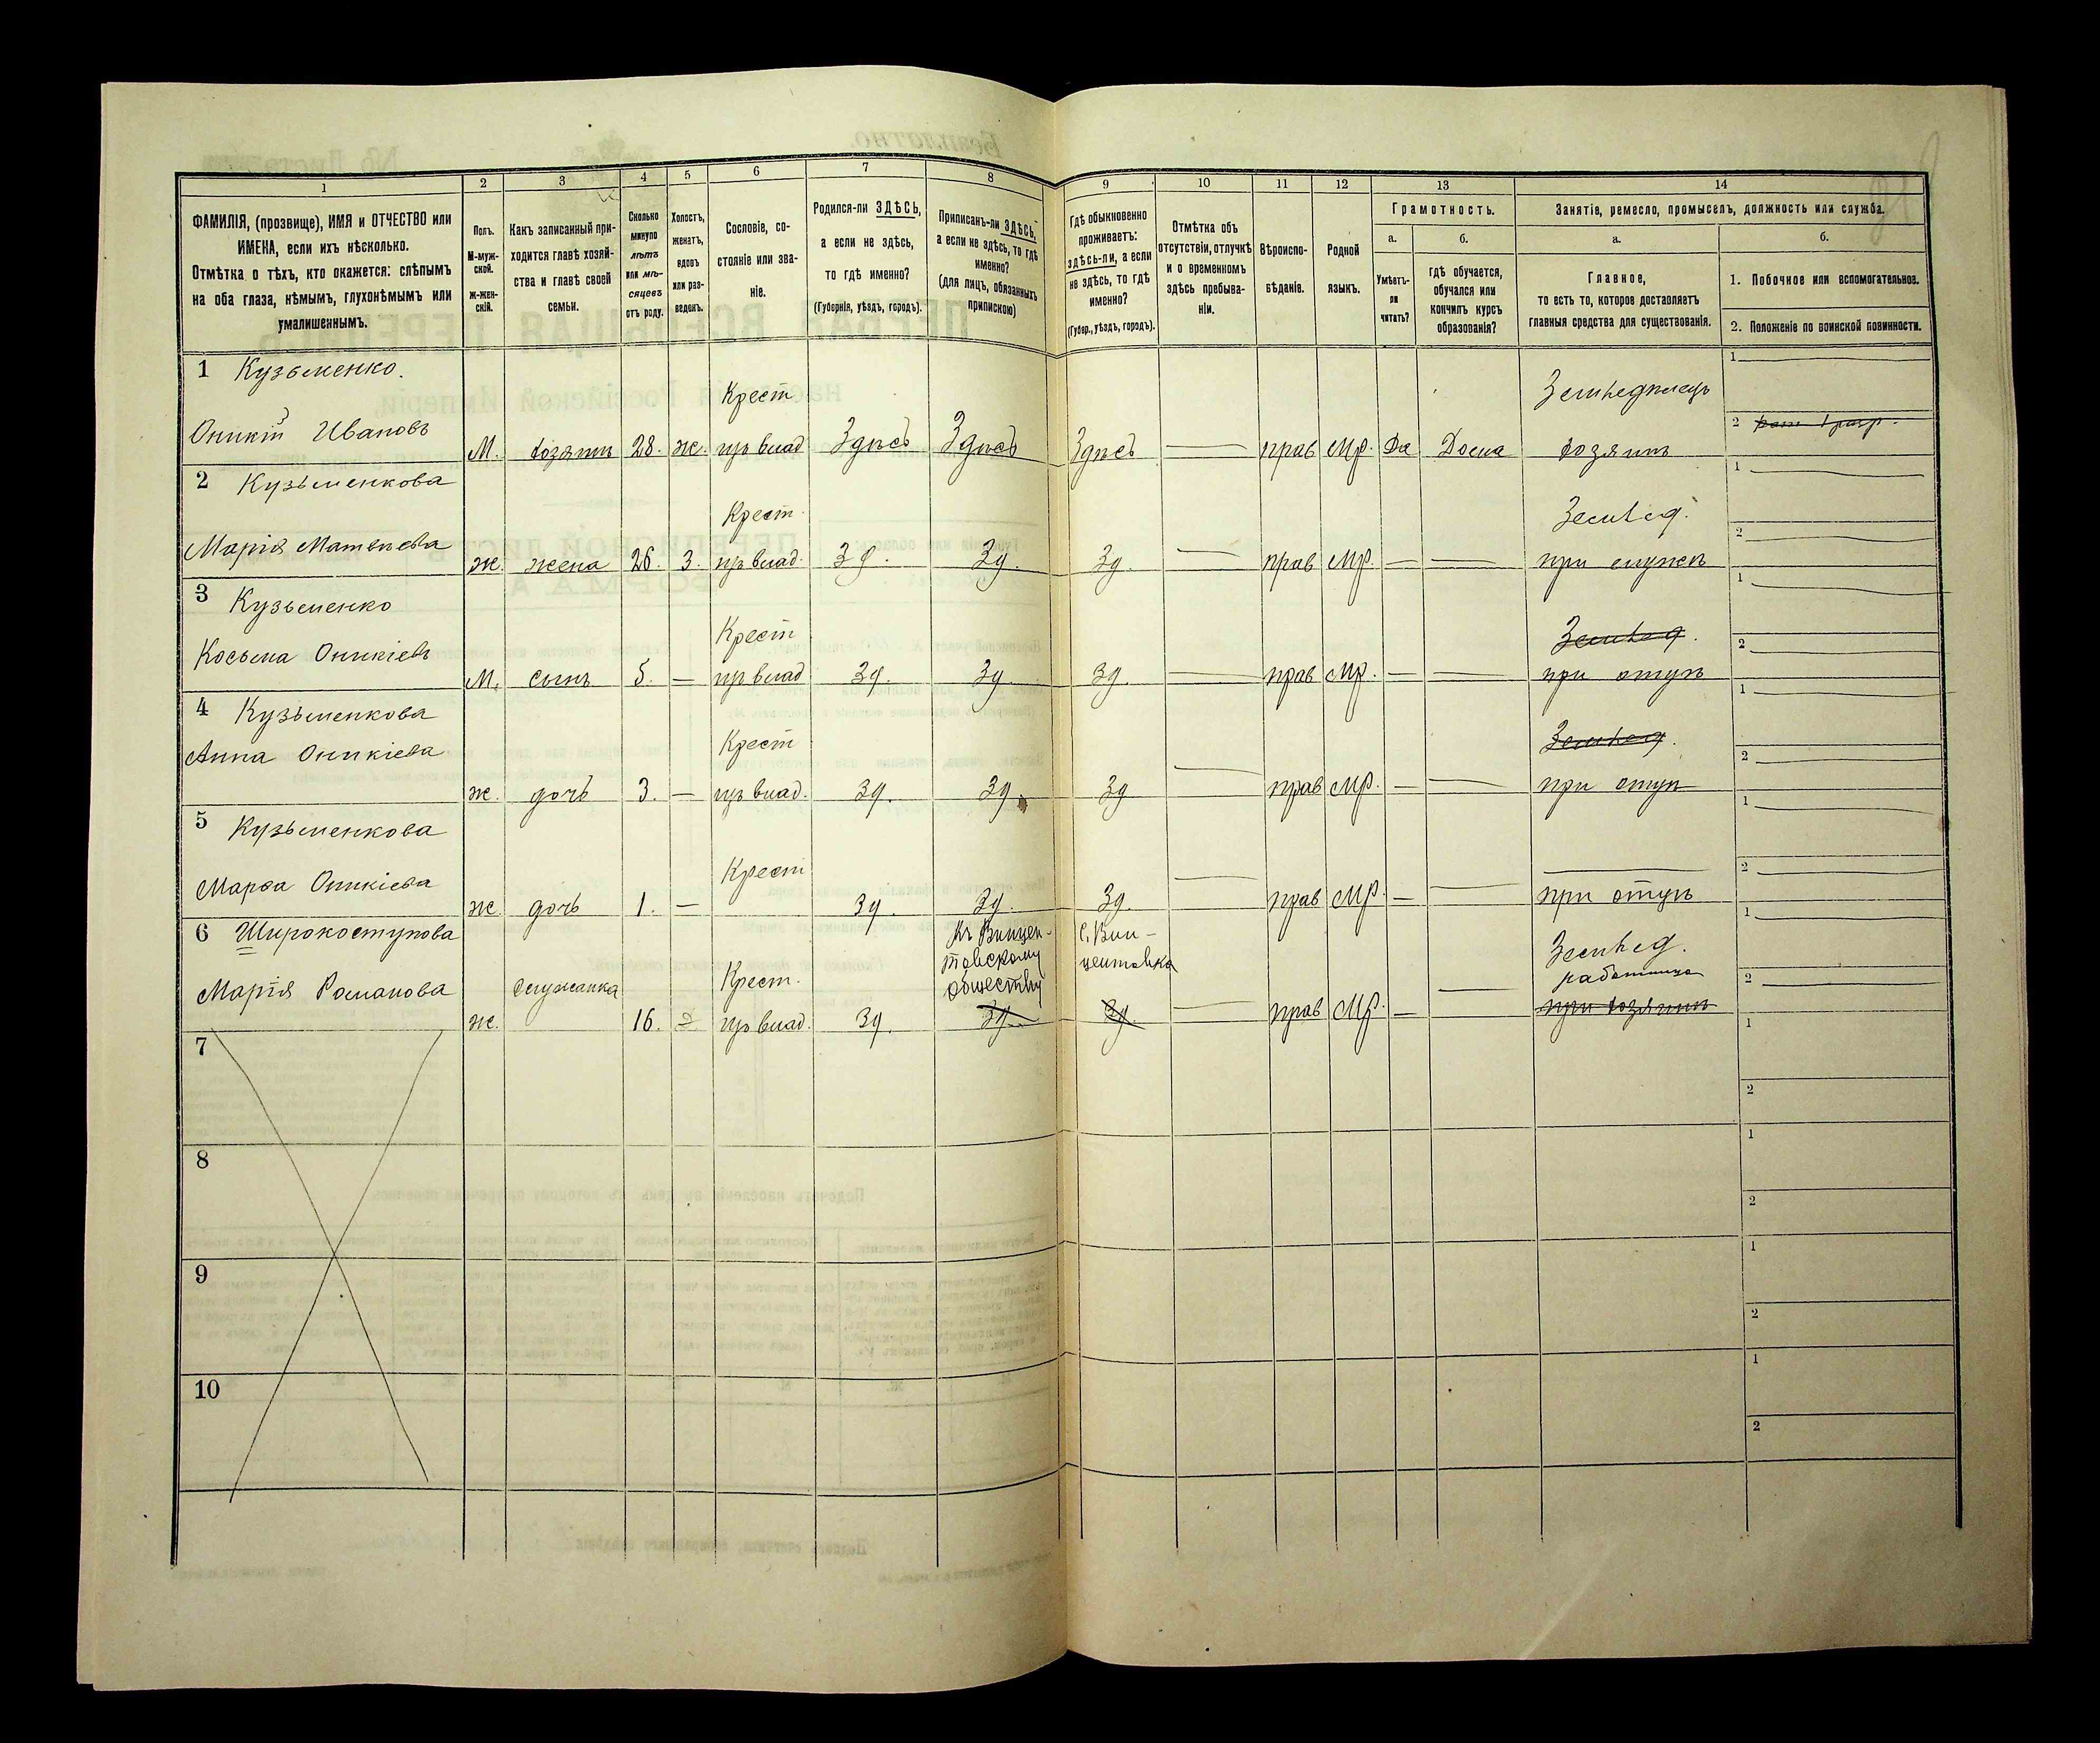 1 2 3 4 5 6 7 8 9 10 11 12 13 14
ФАМИЛІЯ, (прозвище), ИМЯ и ОТЧЕСТВО или
ИМЕНА, если ихъ нѣсколько.
Отмѣтка о тѣхъ, кто окажется: слѣпымъ
на оба глаза, нѣмымъ, глухонѣмымъ или
умалишеннымъ.
Полъ.
М-муж-
ской.
Ж-жен-
скій.
Какъ записанный при-
ходится главѣ хозяй-
ства и главѣ своей
семьи.
Сколько
минуло
лѣтъ
или мѣ-
сяцевъ
отъ роду.
Холостъ,
женатъ,
вдовъ
или раз-
веденъ.
Сословіе, со-
стояніе или зва-
ніе.
Родился-ли ЗДѢСЬ,
а если не здѣсь,
то гдѣ именно?
(Губернія, уѣздъ, городъ).
Приписанъ-ли ЗДѢСЬ,
а если не здѣсь, то гдѣ
именно?
(для лицъ, обязанныхъ
припискою)
Гдѣ обыкновенно
проживаетъ:
здѣсь-ли, а если
не здѣсь, то гдѣ
именно?
(Губер., уѣздъ, городъ).
Отмѣтка объ
отсутствіи, отлучкѣ
и о временномъ
здѣсь пребыва-
ніи.
Вѣроиспо-
вѣданіе.
Родной
языкъ.
Грамотность.
а.
Умѣетъ-
ли
читать?
б.
гдѣ обучается,
обучался или
кончилъ курсъ
образованія?
Занятіе, ремесло, промыселъ, должность или служба.
а.
Главное,
то есть то, которое доставляетъ
главныя средства для существованія.
б.
1. Побочное или вспомогательное.
2. Положеніе по воинской повинности.
1 Кузьменко.
Крест Земледѣлецъ 1
Оникій Ивановъ М. хозяинъ 28. ж. пр влад Здѣсь Здѣсь Здѣсь — прав Мр. Да Дома хозяинъ 2
2 Кузьменкова 1
Крест. Землед.
Марія Матвѣева ж. жена 26. З. пр влад. Зд. Зд. Зд. — прав Мр. — — при мужѣ 2
3 Кузьменко 1
Крест Землед.
Косьма Оникіевъ М. сынъ 5. — пр влад Зд. Зд. Зд. — прав Мр. — — при отцѣ 2
4 Кузьменкова 1
Крест Землед.
Анна Оникіева ж. дочь 3. — пр влад. Зд. Зд. Зд — прав Мр. — — при отцѣ 2
5 Кузьменкова 1
Крест —
Марѳа Оникіева ж. дочь 1. — Зд. Зд. Зд. — прав Мр. — — при отцѣ 2
6 Широкоступова Къ Винцен- С. Вин- 1
товскому центовка Землед.
Марія Романова служанка Крест. обществу работница 2
ж. 16. Д пр влад. Зд. Зд. Зд. — прав Мр. — — при хозяинѣ
7 1
2
8 1
2
9 1
2
10 1
2